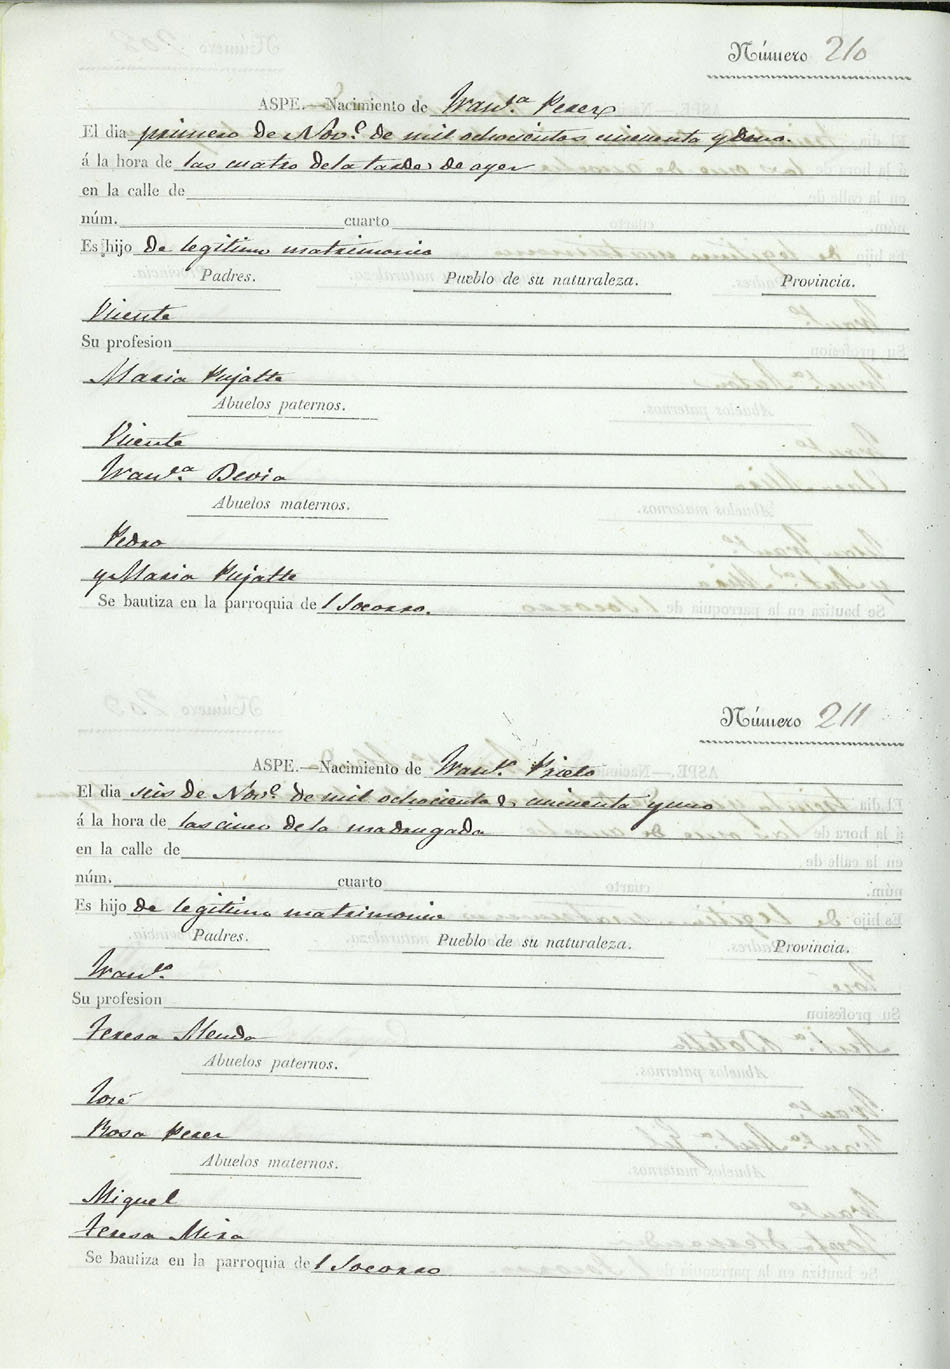 Número 210
ASPE.—Nacimiento de Fran.ca Perez
El dia primero de Nov.e de mil ochocientos cincuenta y uno.
á la hora de las cuatro de la tarde de ayer
en la calle de
núm. cuarto
Es hijo de legitimo matrimonio
Padres. Pueblo de su naturaleza. Provincia.
Vicente
Su profesion
Maria Pujalte
Abuelos paternos.
Vicente
Fran.ca Devia
Abuelos maternos.
Pedro
y Maria Pujalte
Se bautiza en la parroquia del Socorro.
Número 211
ASPE.—Nacimiento de Fran.co Prieto
El dia seis de Nov.e de mil ochocientos cincuenta y uno
á la hora de las cinco de la madrugada
en la calle de
núm. cuarto
Es hijo de legitimo matrimonio
Padres. Pueblo de su naturaleza. Provincia.
Fran.co
Su profesion
Teresa
Abuelos paternos.
José
Rosa Perez
Abuelos maternos.
Miguel
Teresa Mira
Se bautiza en la parroquia del Socorro